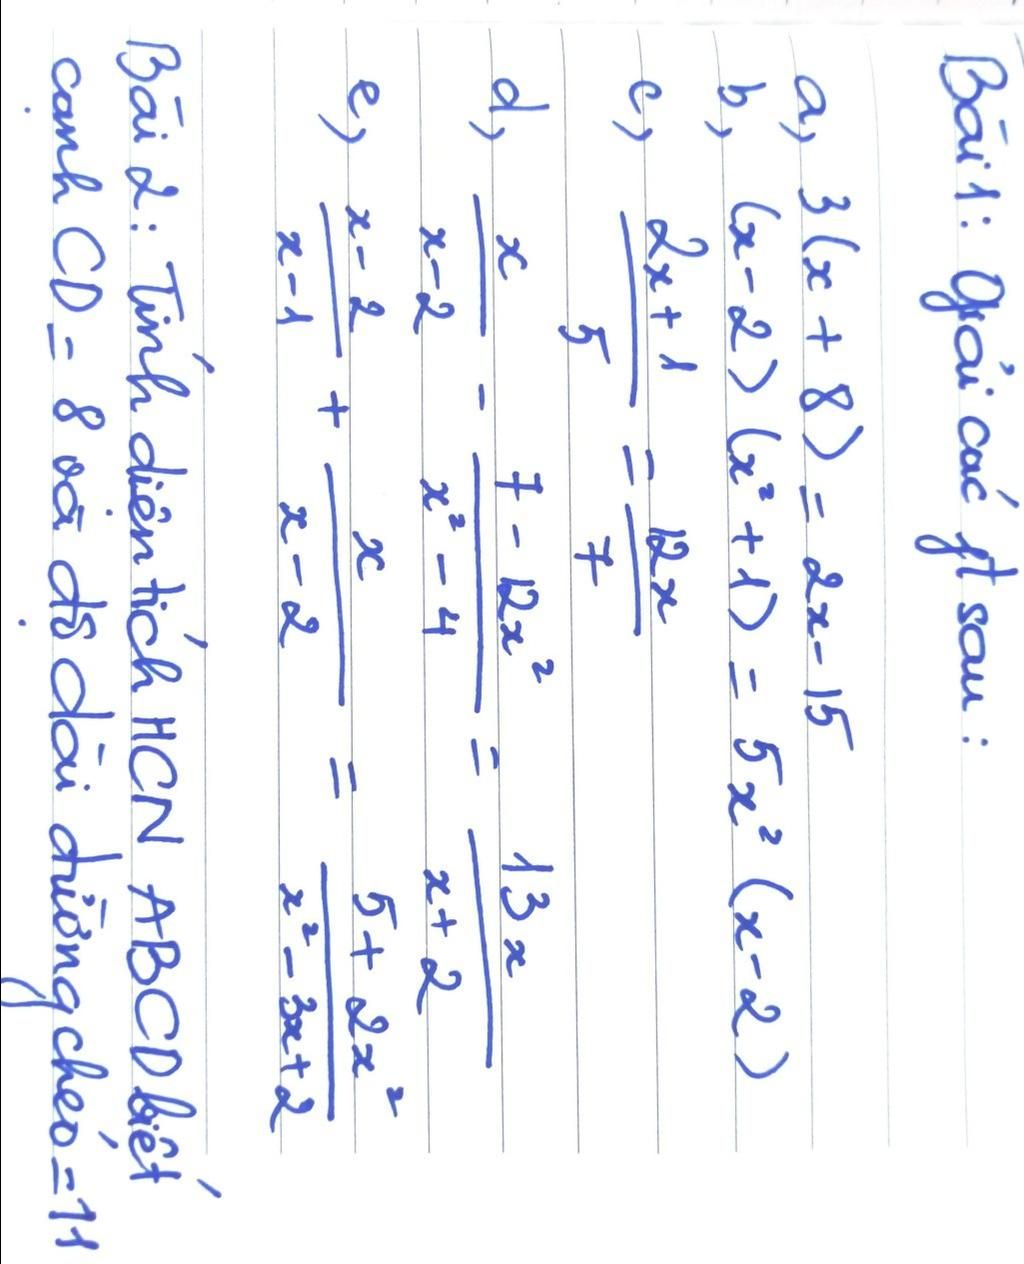 Bài 1: Giải các pt sau:
a, 3(x + 8) = 2x - 15
b, (x - 2)(x² + 1) = 5x²(x - 2)
c, (2x + 1)/5 = 12x/7
d, x/(x - 2) - (7 - 12x²)/(x² - 4) = 13x/(x + 2)
e, (x - 2)/(x - 1) + x/(x - 2) = (5 + 2x²)/(x² - 3x + 2)
Bài 2: Tính diện tích HCN ABCD biết
cạnh CD = 8 và độ dài đường chéo = 11